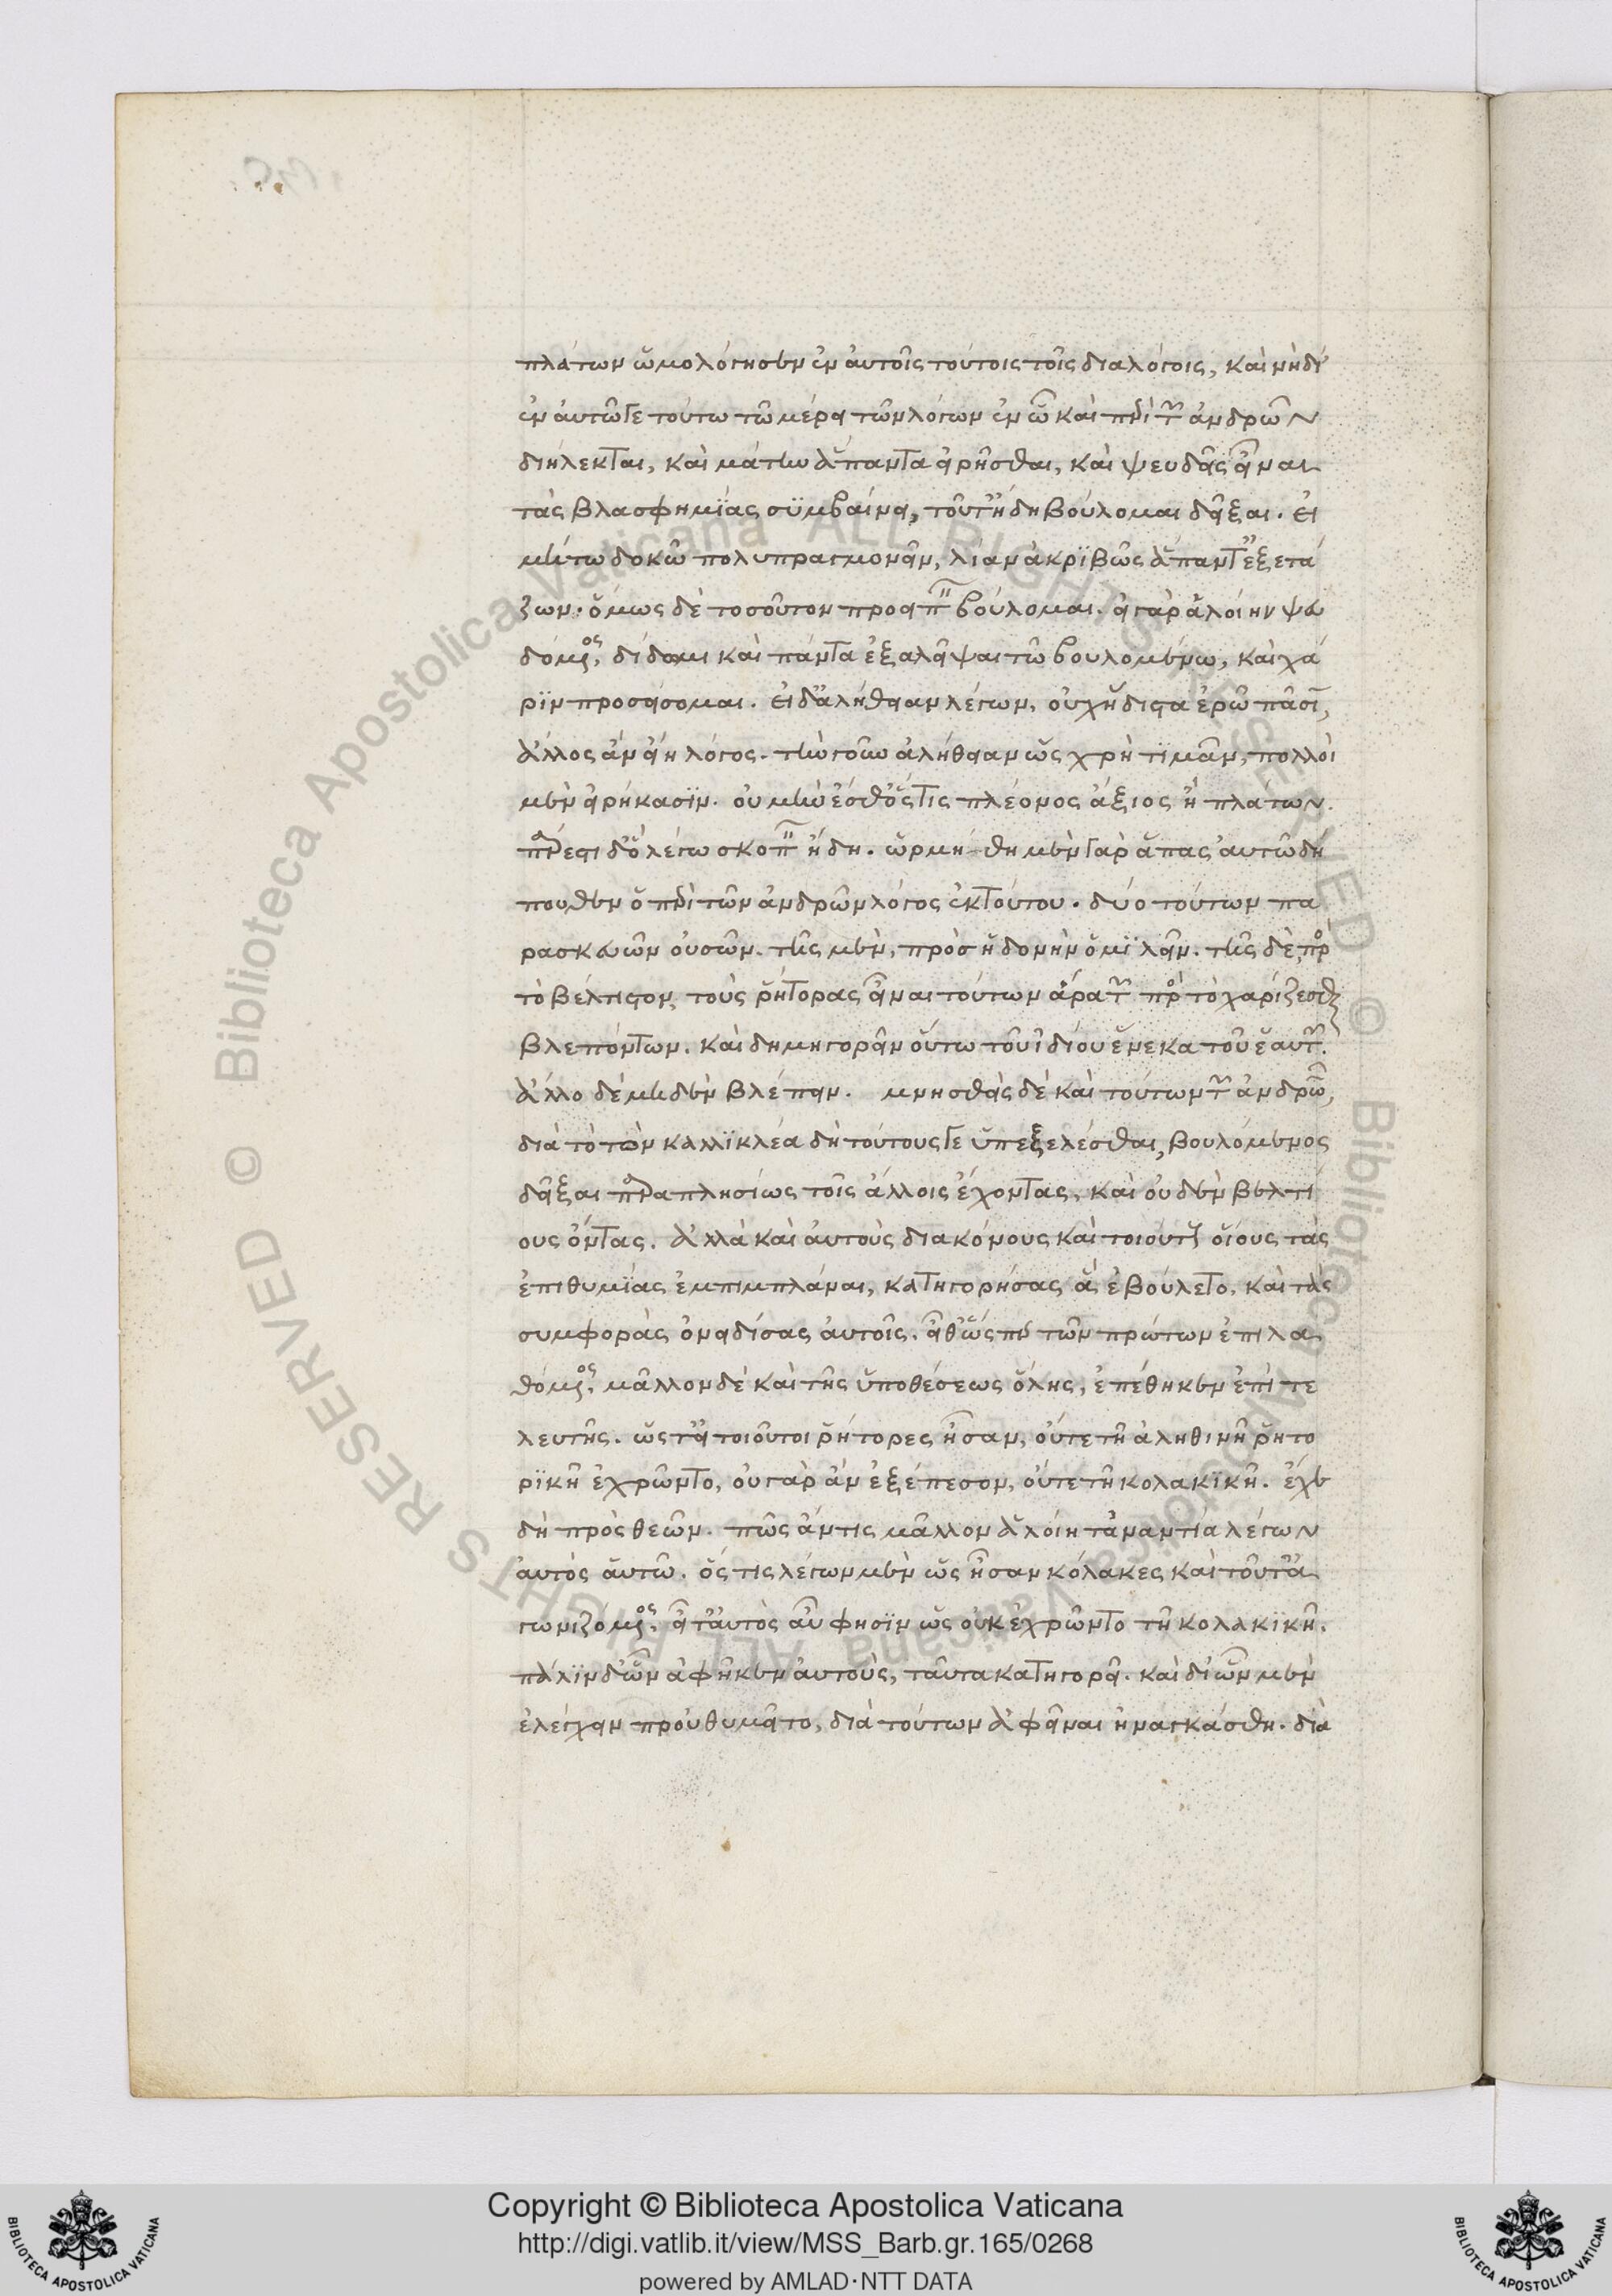 πλάτων ὡμολόγησεν ἐν αὐτοῖς τούτοις τοῖς διαλόγοις, καὶ μηδὲ
ἐν αὐτῶ γε τούτω τῶ μέρει τῶν λόγων ἐν ὧ καὶ περὶ τῶν ἀνδρῶν
διήλεκται, καὶ μάτην ἅπαντα εἰρῆσθαι, καὶ ψευδεῖς εἶναι
τὰς βλασφημίας συμβαίνει, τοῦτ' ἤδη βούλομαι δεῖξαι. εἰ
μέντω δοκῶ πολυπραγμονεῖν, λίαν ἀκριβῶς ἅπαντ' ἐξετά
ζων. ὅμως δὲ τοσοῦτον προειπεῖν βούλομαι. εἰ γὰρ ἁλοίην ψευ
δόμενος, δίδωμι καὶ πάντα ἐξαλεῖψαι τῶ βουλομένω, καὶ χά
ριν προσείσομαι. εἰ δ' ἀλήθειαν λέγων, οὐχ ἥδιστα ἐρῶ πᾶσιν,
ἄλλος ἂν εἴη λόγος. τὴν γοῦν ἀλήθειαν ὡς χρὴ τιμᾶν, πολλοὶ
μὲν εἰρήκασιν. οὐ μὴν ἔσθ' ὅστις πλέονος ἄξιος ἢ πλάτων.
πάρεστι δ' ὃ λέγω σκοπεῖν ἤδη. ὡρμήθη μὲν γὰρ ἅπας αὐτῶ δή
πουθεν ὁ περὶ τῶν ἀνδρῶν λόγος ἐκ τούτου. δύο τούτων πα
ρασκευῶν οὐσῶν. τῆς μὲν, πρὸς ἡδονὴν ὁμιλεῖν. τῆς δὲ, πρὸς
τὸ βέλτιστον, τοὺς ῥήτορας εἶναι τούτων ἄρα τῶν πρὸς τὸ χαρίζεσθαι
βλεπόντων. καὶ δημηγορεῖν οὕτω τοῦ ἰδίου ἕνεκα τοῦ ἑαυτῶν.
ἄλλο δὲ μηδὲν βλέπειν. μνησθεὶς δὲ καὶ τούτων τῶν ἀνδρῶν,
διὰ τὸ τὸν καλλικλέα δὴ τούτους γε ὑπεξελέσθαι, βουλόμενος
δεῖξαι παραπλησίως τοῖς ἄλλοις ἔχοντας, καὶ οὐδὲν βελτί
ους ὄντας. ἀλλὰ καὶ αὐτοὺς διακόνους καὶ τοιούτους οἵους τὰς
ἐπιθυμίας ἐμπιμπλάναι, κατηγορήσας ἃ ἐβούλετο, καὶ τὰς
συμφορὰς ὀνειδίσας αὐτοῖς. εἶθ' ὥσπερ τῶν πρώτων ἐπιλα
θόμενος. μᾶλλον δὲ καὶ τῆς ὑποθέσεως ὅλης, ἐπέθηκεν ἐπὶ τε
λευτῆς. ὡς εἴ τοιοῦτοι ῥήτορες ἦσαν, οὔτε τῆ ἀληθινῆ ῥητο
ρικῆ ἐχρῶντο, οὐ γὰρ ἂν ἐξέπεσον, οὔτε τῆ κολακικῆ. ἔχε
δὴ πρὸς θεῶν. πῶς ἄν τις μᾶλλον ἁλοίη τἀναντία λέγων
αὐτὸς αὑτῶ. ὅς τις λέγων μὲν ὡς ἦσαν κόλακες καὶ τοῦτ' ἀ
γωνιζόμενος. εἶτ' αὐτὸς αὖ φησὶν ὡς οὐκ ἐχρῶντο τῆ κολακικῆ.
πάλιν δ' ὧν ἀφῆκεν αὐτοὺς, ταῦτα κατηγορεῖ. καὶ δι' ὧν μὲν
ἐλέγχειν προὐθυμεῖτο, διὰ τούτων ἀφεῖναι ἠναγκάσθη. διὰ
Copyright © Biblioteca Apostolica Vaticana
http://digi.vatlib.it/view/MSS_Barb.gr.165/0268
powered by AMLAD·NTT DATA